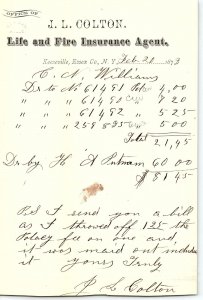 OFFICE OF
J. L. COLTON,
Life and Fire Insurance Agent,
Keeseville, Essex Co., N. Y. Feb 21 1873
C. N. Williams
Dr to No 61481 4,00
" " " 61490 7 20
" " " 61492 5 25
" " " 259835 5 00
Total 21,45
Dr by H A Putnam 60 00
$ 81 45
I send you a bill
as I throwed off 125 the
Policy fee on one and
it was maid out
yours Truly
J L Colton